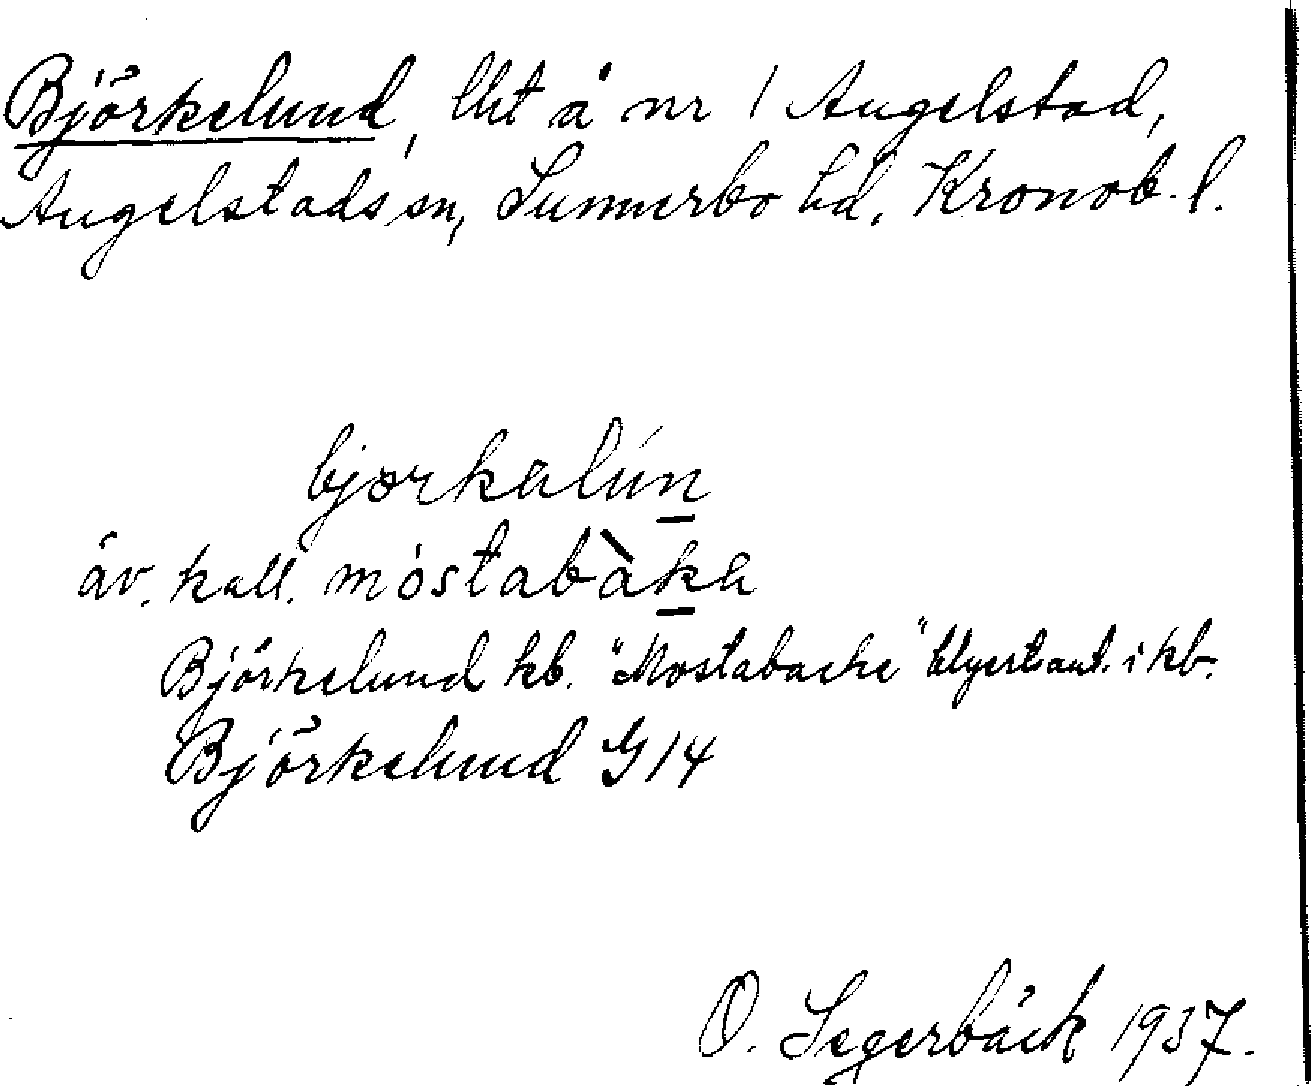 Björkelund, lht å nr 1 Angelstad,
Angelstads sn, Sunnerbo hd, Kronob. l.
bjɷrkalún
äv. kall. móstabàka
Björkelund kb. "Mostabacke" blyertsant. i kb.
Björkelund G 14
O. Segerbäck 1937.